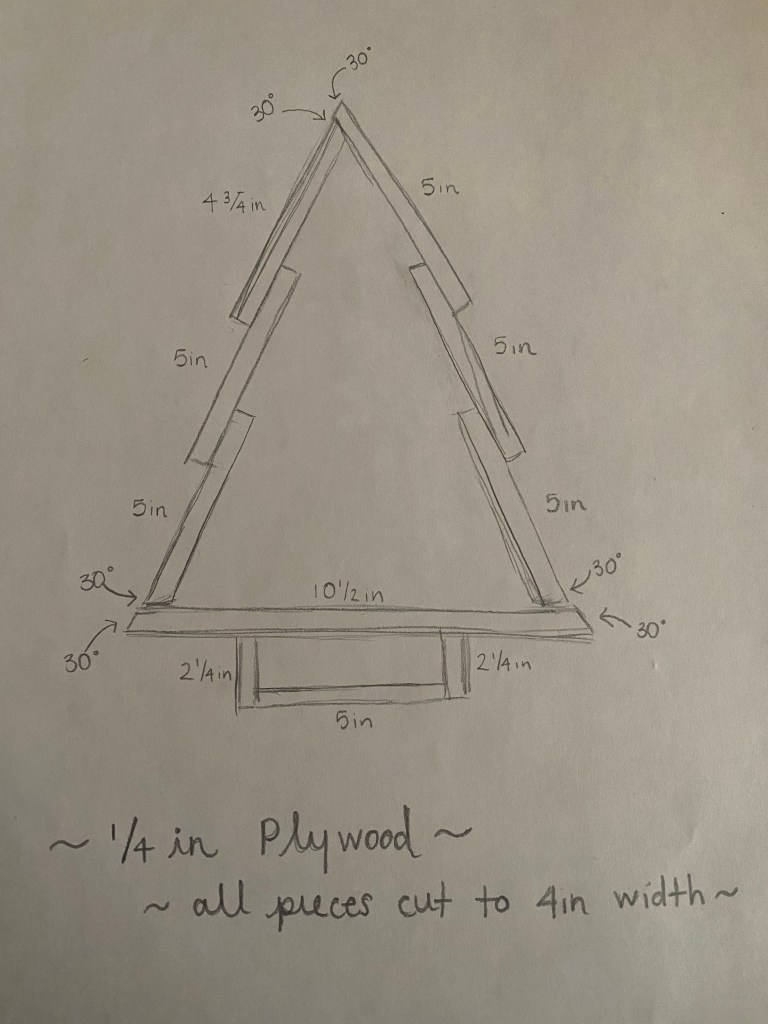 30°
30°
4 3/4 in
5in
5in
5in
5in
5in
30°
30°
10 1/2 in
30°
30°
2 1/4 in
2 1/4 in
5in
~ 1/4 in Plywood ~
~ all pieces cut to 4in width ~